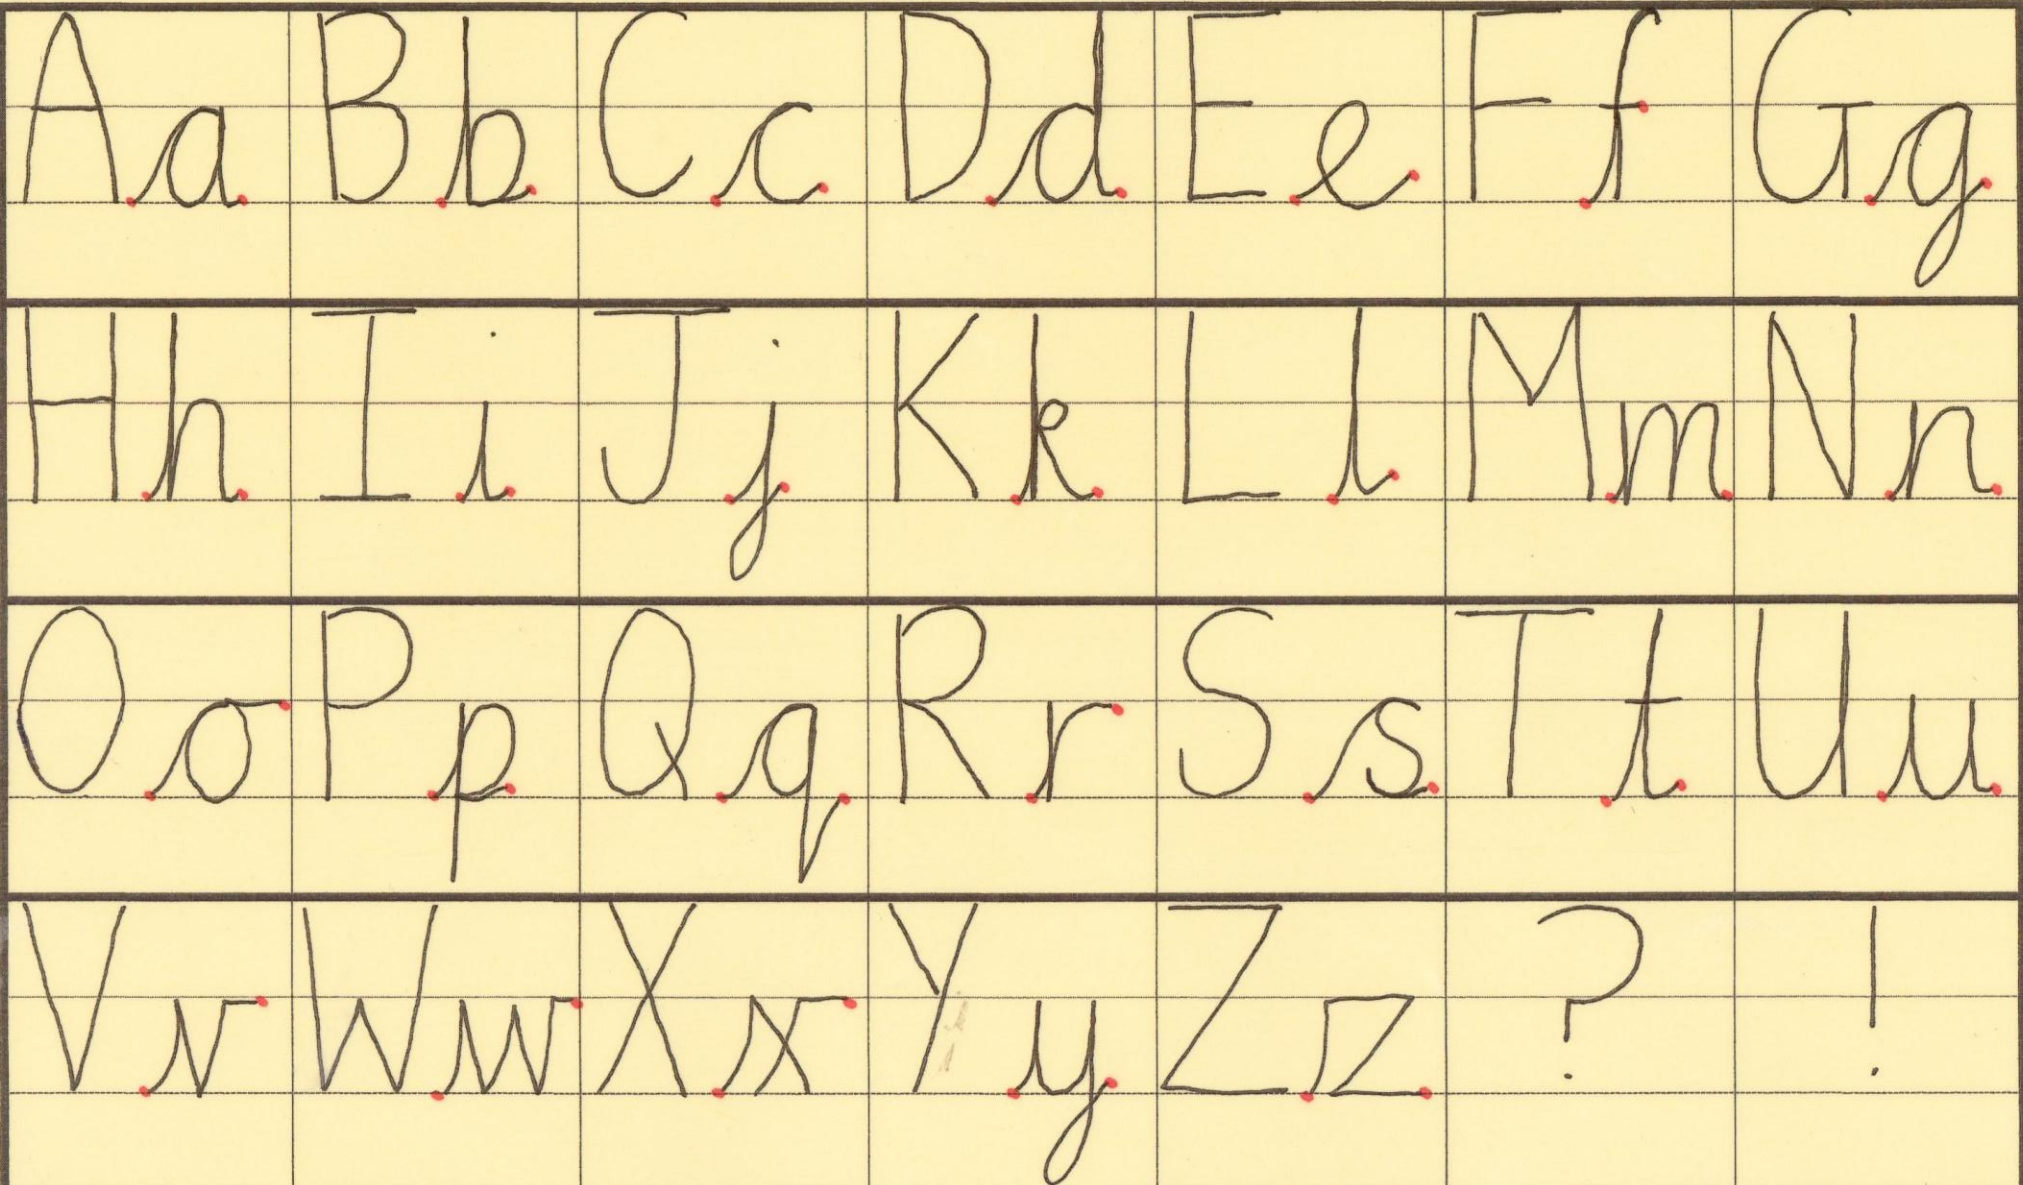 Aa Bb Cc Dd Ee Ff Gg
Hh Ii Jj Kk Ll Mm Nn
Oo Pp Qq Rr Ss Tt Uu
Vv Ww Xx Yy Zz ? !